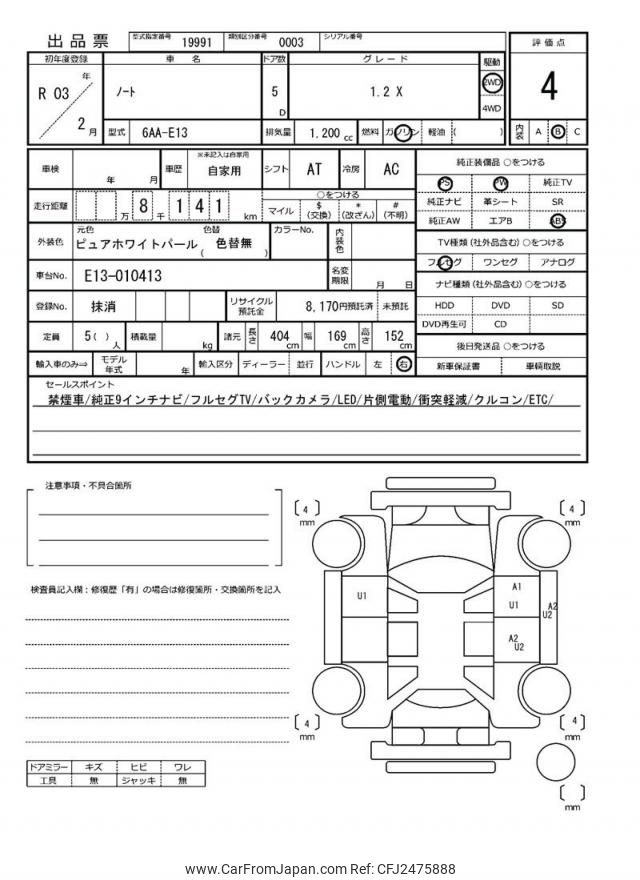 出品票 型式指定番号 19991 類別区分番号 0003 シリアル番号
初年度登録 車名 ドア数 グレード 駆動 評価点
R 03 年 2 月 ノート 5 D 1.2 X 2WD 4WD 4
型式 6AA-E13 排気量 1,200 cc 燃料 ガソリン 軽油 ( ) 内装 A B C
車検 年 月 車歴 ※未記入は自家用 自家用 シフト AT 冷房 AC
走行距離 万 8 千 1 4 1 km ○をつける
マイル $ (交換) * (改ざん) # (不明)
外装色 元色 ピュアホワイトパール 色替 ( 色替無 ) カラーNo. 内装色
車台No. E13-010413 名変期限 月 日
登録No. 抹消 リサイクル預託金 8,170円預託済 未預託
定員 5 ( ) 人 積載量 kg 諸元 長さ 404 cm 幅 169 cm 高さ 152 cm
輸入車のみ⇒ モデル年式 年 輸入区分 ディーラー 並行 ハンドル 左 右
純正装備品 ○をつける
PS PW 純正TV
純正ナビ 革シート SR
純正AW エアB ABS
TV種類 (社外品含む) ○をつける
フルセグ ワンセグ アナログ
ナビ種類 (社外品含む) ○をつける
HDD DVD SD
DVD再生可 CD
後日発送品 ○をつける
新車保証書 車輌取説
セールスポイント
禁煙車/純正9インチナビ/フルセグTV/バックカメラ/LED/片側電動/衝突軽減/クルコン/ETC/
注意事項・不具合箇所
検査員記入欄：修復歴「有」の場合は修復箇所・交換箇所を記入
ドアミラー キズ ヒビ ワレ
工具 無 ジャッキ 無
[ 4 ] mm
[ 4 ] mm
U1
A1
U1
A2
U2
A2
U2
[ 4 ] mm
[ 4 ] mm
[ ] mm
www.CarFromJapan.com Ref: CFJ2475888